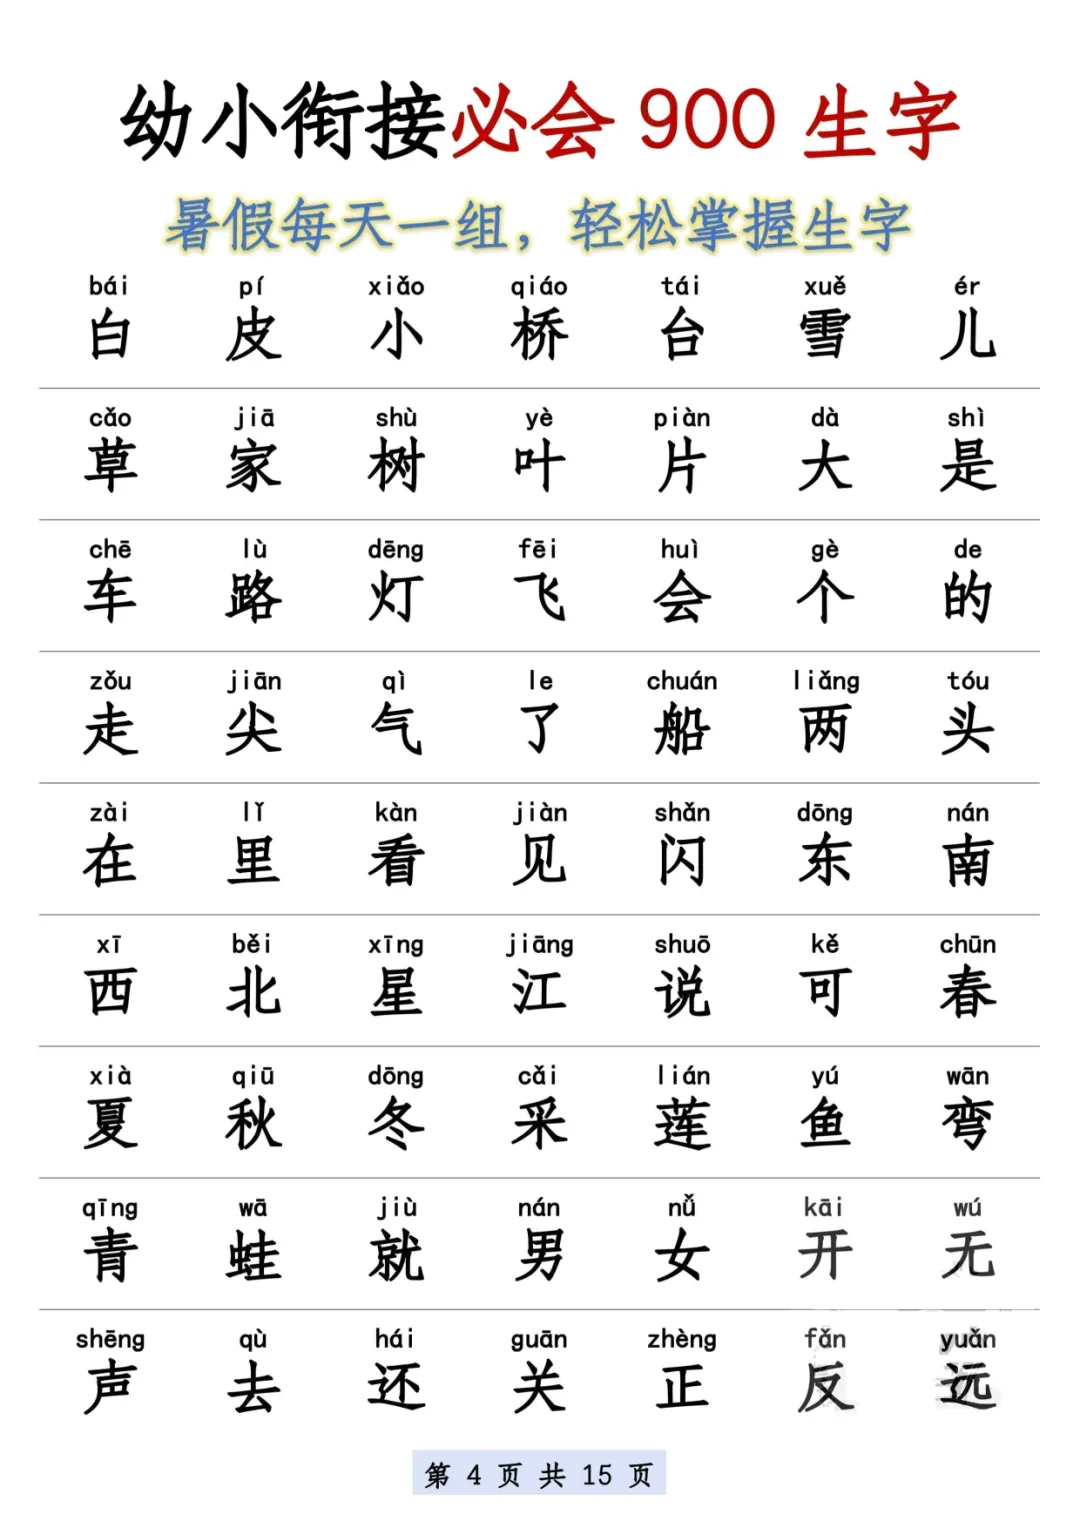 幼小衔接必会 900 生字
暑假每天一组，轻松掌握生字
bái pí xiǎo qiáo tái xuě ér
白 皮 小 桥 台 雪 儿
cǎo jiā shù yè piàn dà shì
草 家 树 叶 片 大 是
chē lù dēng fēi huì gè de
车 路 灯 飞 会 个 的
zǒu jiān qì le chuán liǎng tóu
走 尖 气 了 船 两 头
zài lǐ kàn jiàn shǎn dōng nán
在 里 看 见 闪 东 南
xī běi xīng jiāng shuō kě chūn
西 北 星 江 说 可 春
xià qiū dōng cǎi lián yú wān
夏 秋 冬 采 莲 鱼 弯
qīng wā jiù nán nǚ kāi wú
青 蛙 就 男 女 开 无
shēng qù hái guān zhèng fǎn yuǎn
声 去 还 关 正 反 远
第 4 页 共 15 页